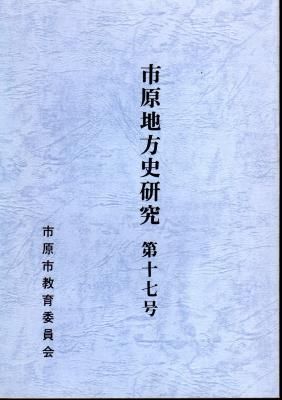 市原地方史研究 第十七号
市原市教育委員会